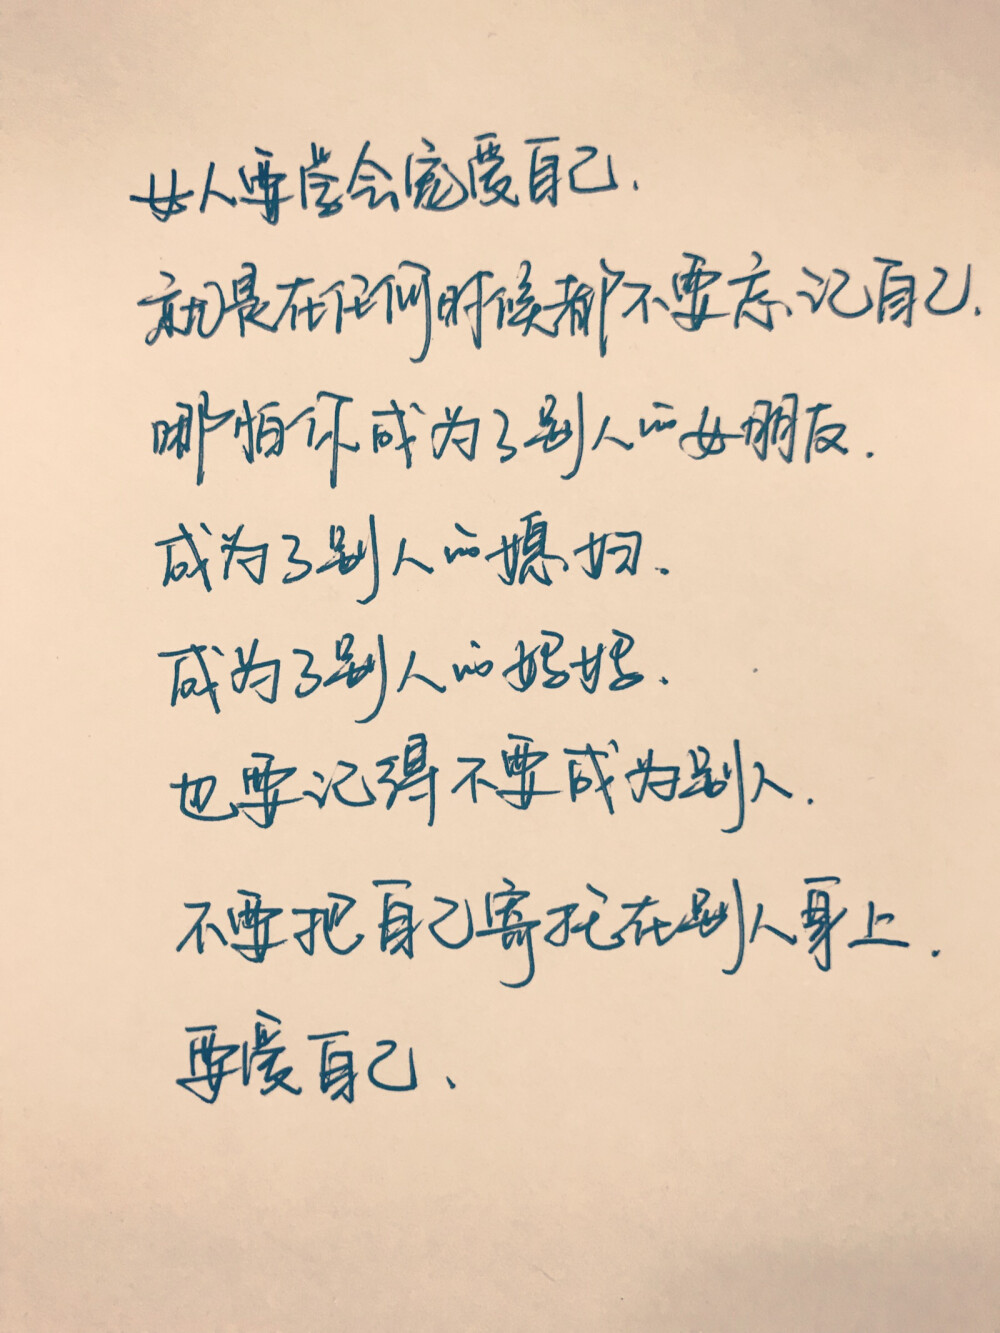 女人要学会宠爱自己.
就是在任何时候都不要忘记自己.
哪怕你成为了别人的女朋友.
成为了别人的媳妇.
成为了别人的妈妈.
也要记得不要成为别人.
不要把自己寄托在别人身上.
要爱自己.